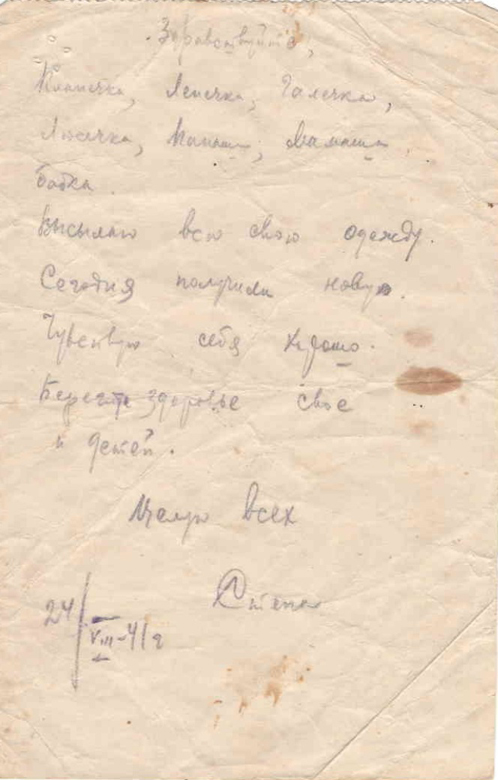 Здравствуйте,
Клавочка, Леночка, Галечка,
Люсечка, Папаша, Мамаша,
бабка.
Высылаю всю свою одежду.
Сегодня получили новую.
Чувствую себя хорошо.
Берегите здоровье свое
и детей.
Целую всех
Степан
24/VIII-41г